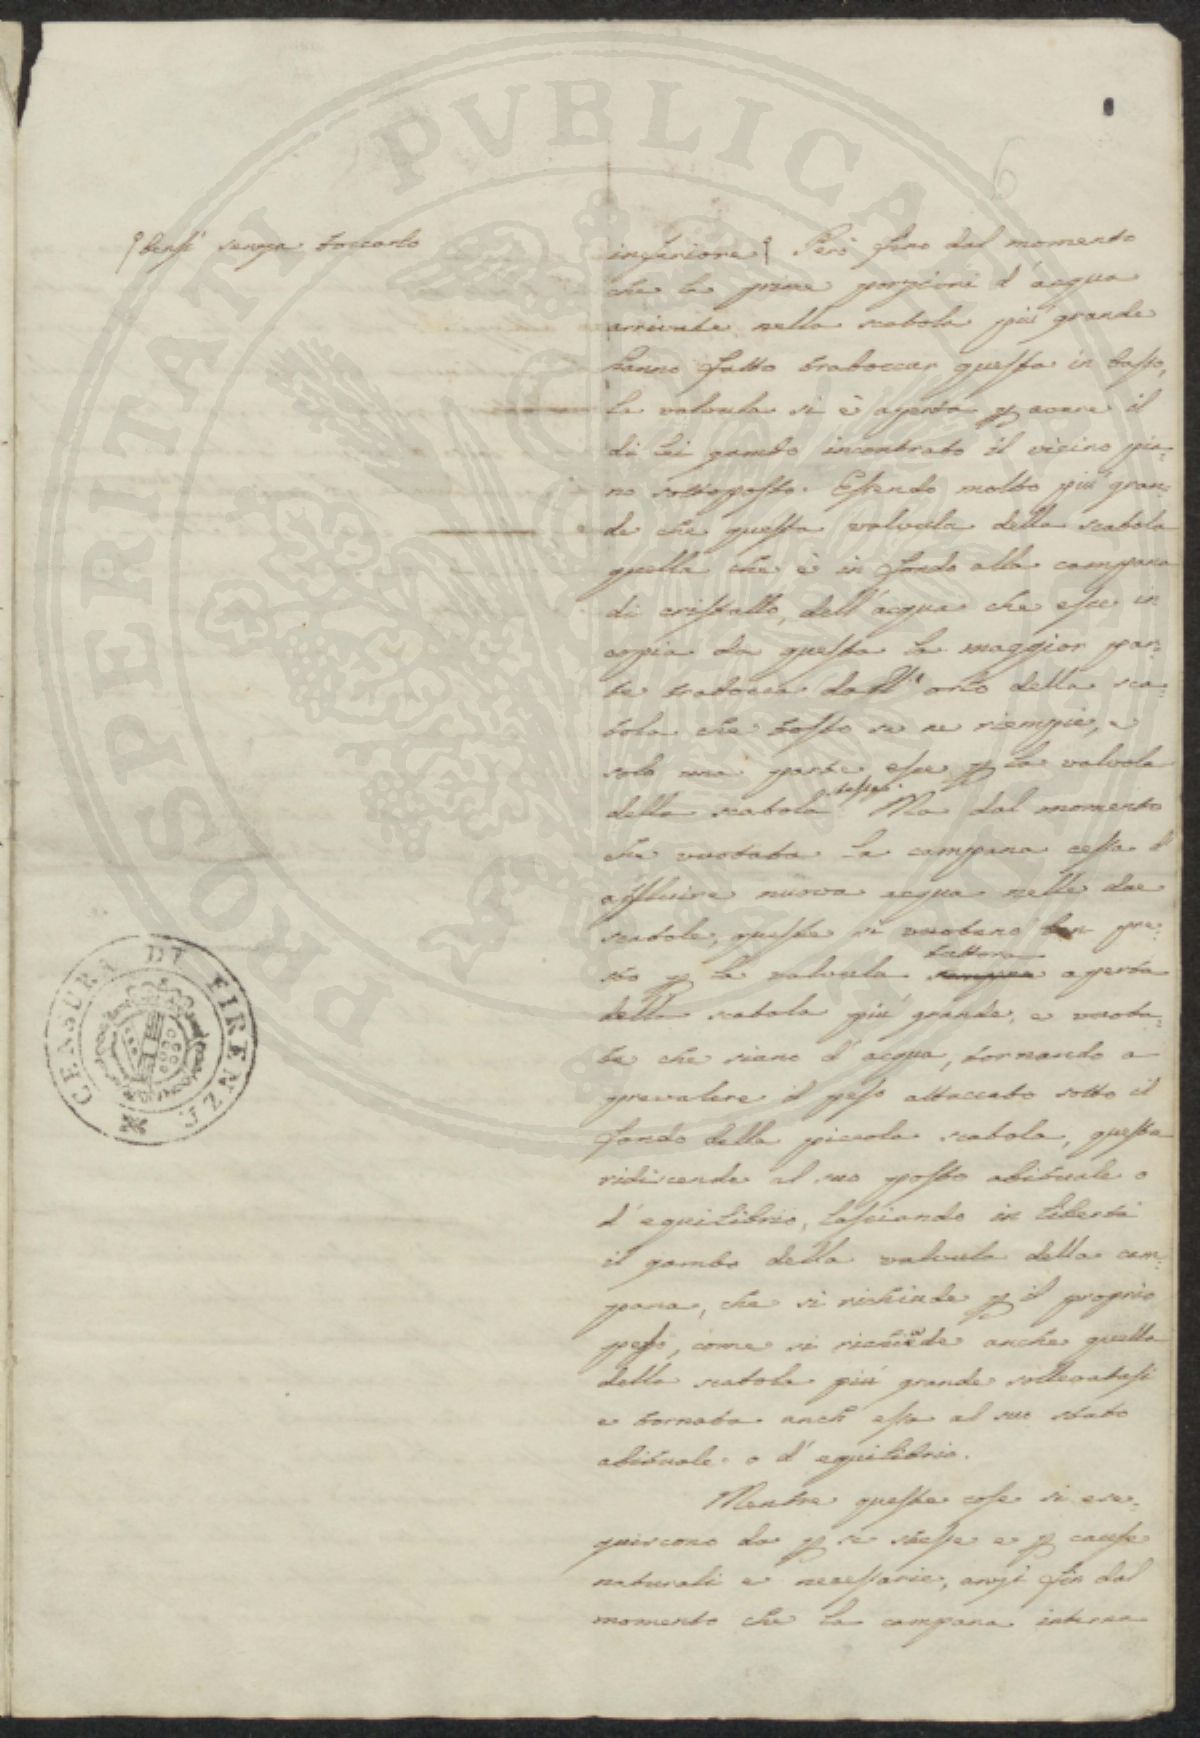 6
bensì senza toccarlo
inferiore Però fino dal momento
che le prime porzioni d'acqua
arrivate nella scatola più grande
hanno fatto traboccar questa in basso,
la valvula si è aperta p avere il
di lei gambo incontrato il vicino pia-
no sottoposto. Essendo molto più gran-
de che questa valvula della scatola
quella che è in fondo alla campana
di cristallo, dell'acqua che esce in
copia da questa la maggior par-
te trabocca dall'orlo della sca-
tola che tosto se ne riempie, e
solo una parte esce p la valvola
della scatola stessa. Ma dal momento
che vuotata la campana cessa d'
affluire nuova acqua nelle due
scatole, queste si vuotano ben pre-
sto p la valvula sempre tuttora aperta
della scatola più grande, e vuota-
te che siano d'acqua, tornando a
prevalere il peso attaccato sotto il
fondo della piccola scatola, questa
ridiscende al suo posto abituale o
d'equilibrio, lasciando in libertà
il gambo della valvula della cam-
pana, che si richiude p il proprio
peso, come si richiude anche quella
della scatola più grande sollevatasi
e tornata anch'essa al suo stato
abituale o d'equilibrio.
Mentre queste cose si ese-
guiscono da p se stesse e p cause
naturali e necessarie, anzi fin dal
momento che la campana interna
CENSURA DI FIRENZE
PROSPERITATI PVBLICAE